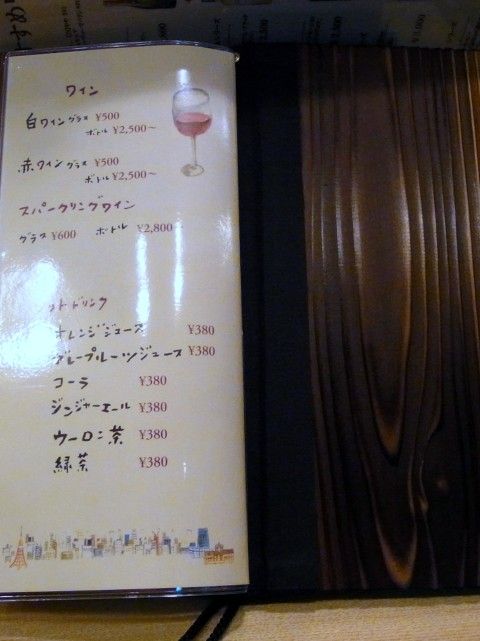 ワイン
白ワイン グラス ¥500
ボトル ¥2,500~
赤ワイン グラス ¥500
ボトル ¥2,500~
スパークリングワイン
グラス ¥600 ボトル ¥2,800~
ドリンク
オレンジジュース ¥380
グレープルーツジュース ¥380
コーラ ¥380
ジンジャーエール ¥380
ウーロン茶 ¥380
緑茶 ¥380